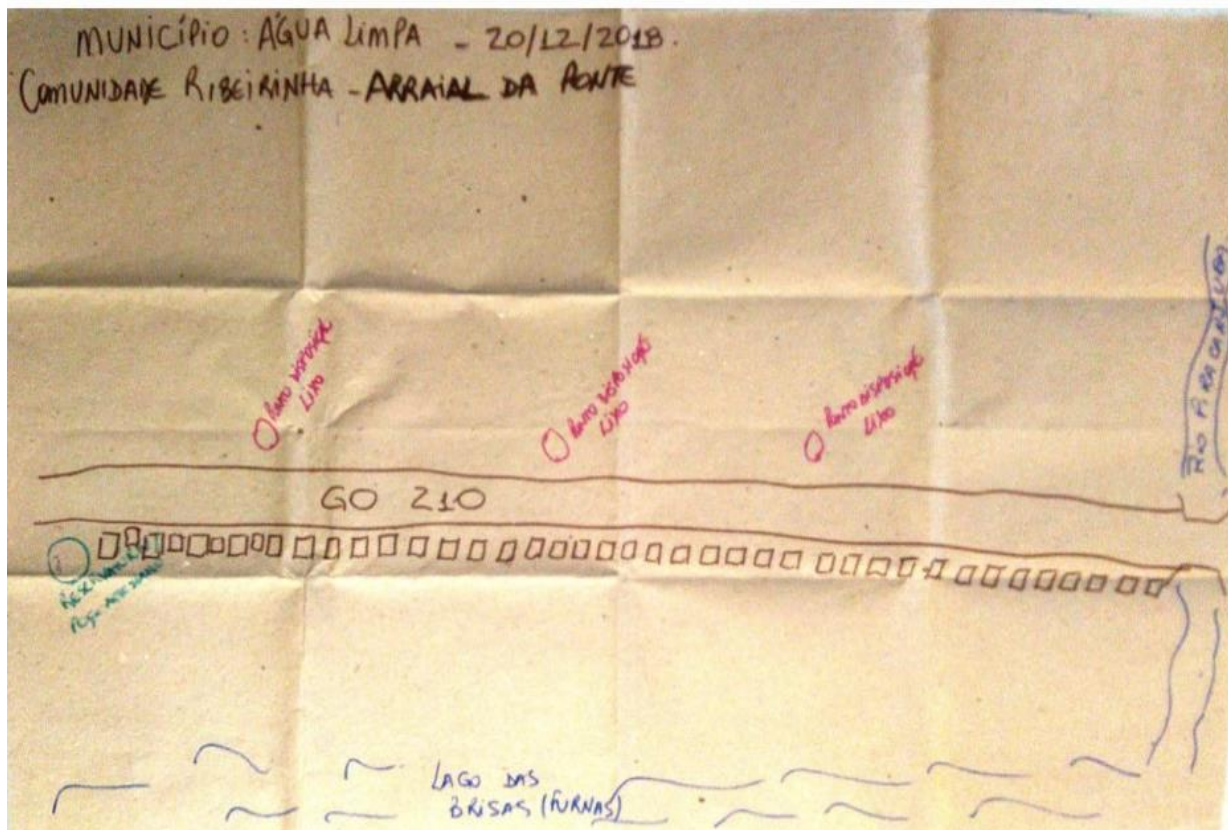 MUNICÍPIO: ÁGUA LIMPA - 20/12/2018.
COMUNIDADE RIBEIRINHA - ARRAIAL DA PONTE
PONTO DISPOSIÇÃO
LIXO
PONTO DISPOSIÇÃO
LIXO
PONTO DISPOSIÇÃO
LIXO
RIO PIRACANJUBA
GO 210
RESERVATÓRIO
POÇO ARTESIANO
LAGO DAS
BRISAS (FURNAS)